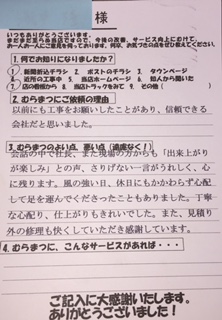 様
いつもありがとうございます。
まだまだ足らぬ当店ですので、今後の改善、サービス向上にむけて、
お一人お一人にご意見を伺っております。何卒、お気づきの点をぜひ教えてください。
1. 何でお知りになりましたか？
1) 新聞折込チラシ 2. ポストのチラシ 3. タウンページ
4. 近所の工事中 5. 当店ホームページ 6. 知人から聞いた
7. 店の看板から 8. 当店トラックをみて 9. その他 (
2. むらまつにご依頼の理由
以前にも工事をお願いしたことがあり、信頼できる
会社だと思いました。
3. むらまつのよい点 悪い点（遠慮なく！）
会話の中で社長、また現場の方からも「出来上がり
が楽しみ」との声、さりげない一言がうれしく、心
に残ります。風の強い日、休日にもかかわらず心配
して足を運んでくださったこともありました。丁寧
な心配り、仕上がりもきれいでした。また、見積り
外の修理も快くしていただき感謝しています。
4. むらまつに、こんなサービスがあれば・・・
ご記入に大感謝いたします。
ありがとうございました！